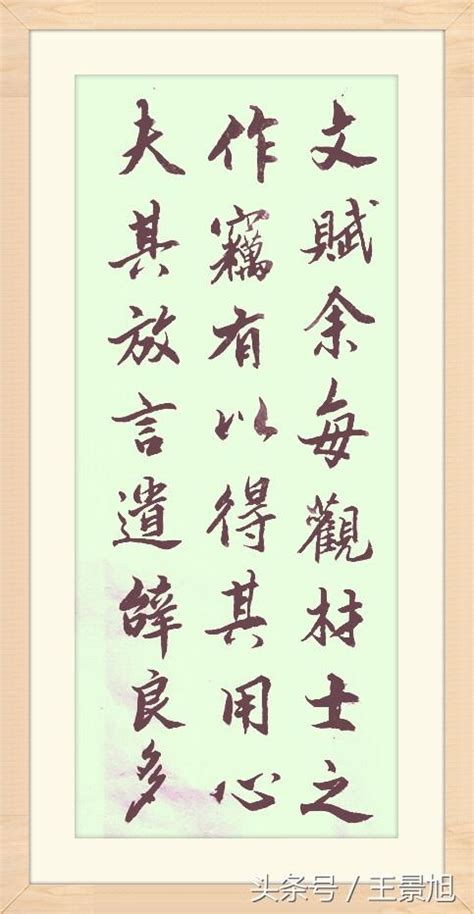 文賦余每觀材士之
作竊有以得其用心
夫其放言遣辭良多
头条号／王景旭